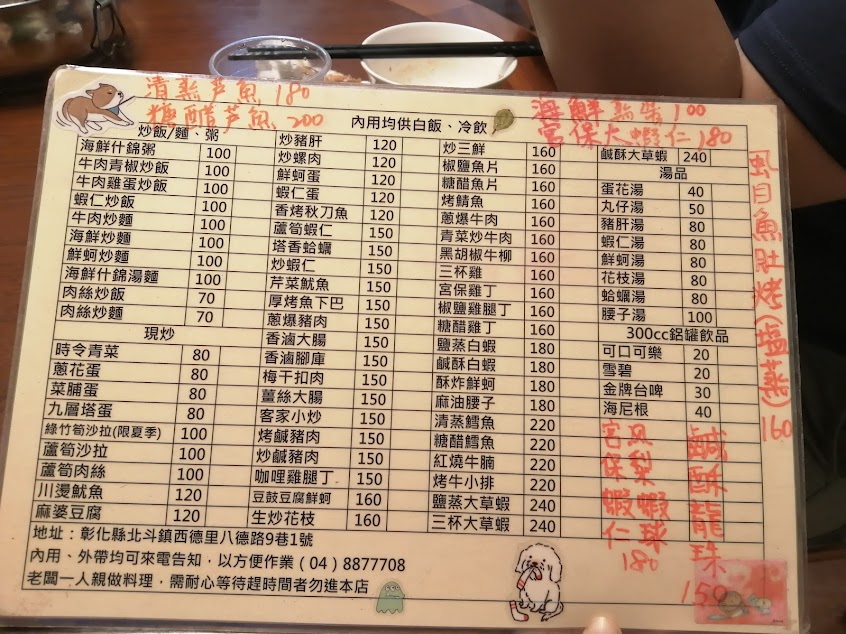 清蒸芦魚 180
糖醋芦魚 200
內用均供白飯、冷飲
海鮮 100
宮保大蝦仁 180
炒飯/麵、粥
海鮮什錦粥 100
牛肉青椒炒飯 100
牛肉雞蛋炒飯 100
蝦仁炒飯 100
牛肉炒麵 100
海鮮炒麵 100
鮮蚵炒麵 100
海鮮什錦湯麵 100
肉絲炒飯 70
肉絲炒麵 70
現炒
時令青菜 80
蔥花蛋 80
菜脯蛋 80
九層塔蛋 80
綠竹筍沙拉(限夏季) 100
蘆筍沙拉 100
蘆筍肉絲 100
川燙魷魚 120
麻婆豆腐 120
炒豬肝 120
炒螺肉 120
鮮蚵蛋 120
蝦仁蛋 120
香烤秋刀魚 120
蘆筍蝦仁 150
塔香蛤蠣 150
炒蝦仁 150
芹菜魷魚 150
厚烤魚下巴 150
蔥爆豬肉 150
香滷大腸 150
香滷腳庫 150
梅干扣肉 150
薑絲大腸 150
客家小炒 150
烤鹹豬肉 150
炒鹹豬肉 150
咖哩雞腿丁 150
豆鼓豆腐鮮蚵 160
生炒花枝 160
炒三鮮 160
椒鹽魚片 160
糖醋魚片 160
烤鯖魚 160
蔥爆牛肉 160
青菜炒牛肉 160
黑胡椒牛柳 160
三杯雞 160
宮保雞丁 160
椒鹽雞腿丁 160
糖醋雞丁 160
鹽蒸白蝦 180
鹹酥白蝦 180
酥炸鮮蚵 180
麻油腰子 180
清蒸鱈魚 220
糖醋鱈魚 220
紅燒牛腩 220
烤牛小排 220
鹽蒸大草蝦 240
三杯大草蝦 240
鹹酥大草蝦 240
湯品
蛋花湯 40
丸仔湯 50
豬肝湯 80
蝦仁湯 80
鮮蚵湯 80
花枝湯 80
蛤蠣湯 80
腰子湯 100
300cc鋁罐飲品
可口可樂 20
雪碧 20
金牌台啤 30
海尼根 40
虱目魚肚烤(塩蒸) 160
鹹酥龍珠 150
鳳梨蝦球
宮保蝦仁
180
地址：彰化縣北斗鎮西德里八德路9巷1號
內用、外帶均可來電告知，以方便作業 (04) 8877708
老闆一人親做料理，需耐心等待趕時間者勿進本店